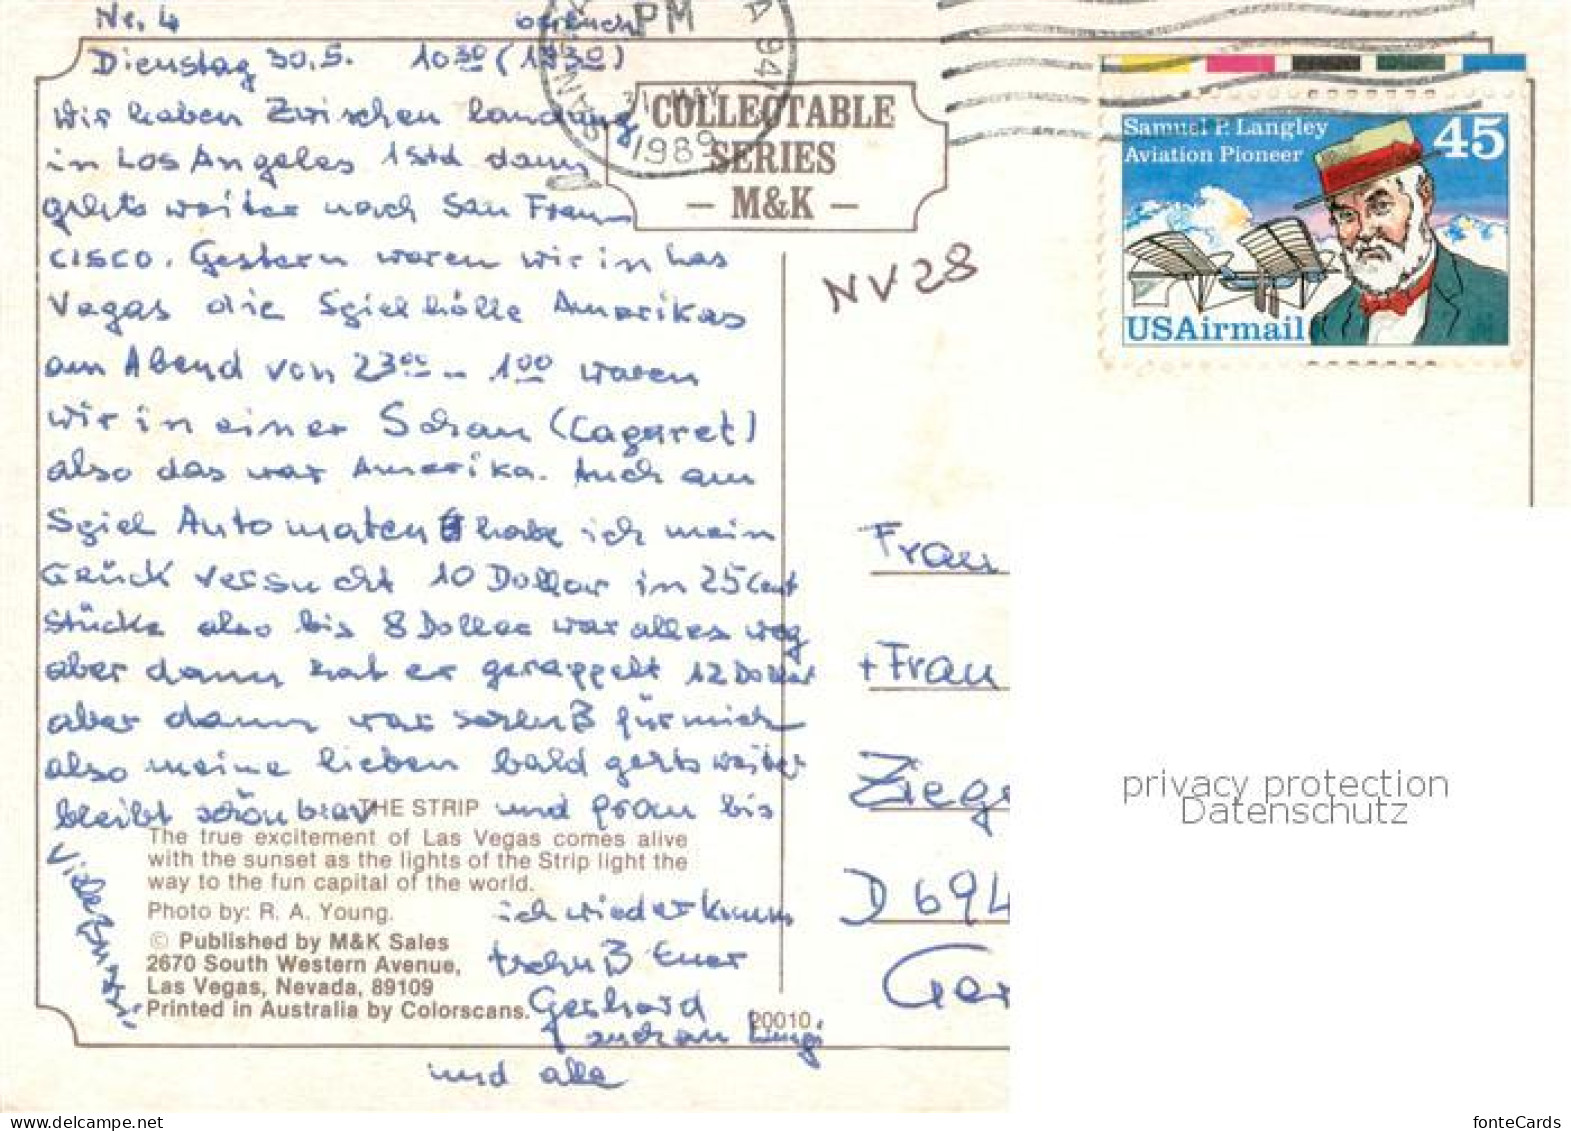 Nr. 4
Dienstag 30.5. 10 30 (1930)
wir haben Zwischen landung
in Los Angeles 1 Std dann
gehts weiter nach San Fran
cisco. Gestern waren wir in Las
Vegas die Spielhölle Amerikas
am Abend von 23 00 - 1 00 waren
wir in einer Schau (Cagaret)
also das war Amerika. Auch am
Spiel Automaten habe ich mein
Glück versucht 10 Dollar in 25 Cent
Stücke also bis 8 Dollar war alles weg
aber dann hat er gerappelt 12 Dollar
aber dann war schluß für mich
also meine lieben bald gehts weiter
bleibt schön brav und fram bis
ich wieder komm
tschuß Euer
Gerhard
und alle
PM
31 MAY
1989
COLLECTABLE
SERIES
– M&K –
NV28
Samual P. Langley
Aviation Pioneer
45
USAirmail
Frau
+ Frau
Ziege
D 694
Ger
THE STRIP
The true excitement of Las Vegas comes alive
with the sunset as the lights of the Strip light the
way to the fun capital of the world.
Photo by: R. A. Young.
© Published by M&K Sales
2670 South Western Avenue,
Las Vegas, Nevada, 89109
Printed in Australia by Colorscans.
20010
privacy protection
Datenschutz
www.ansichtskarten-center.de
fonteCards